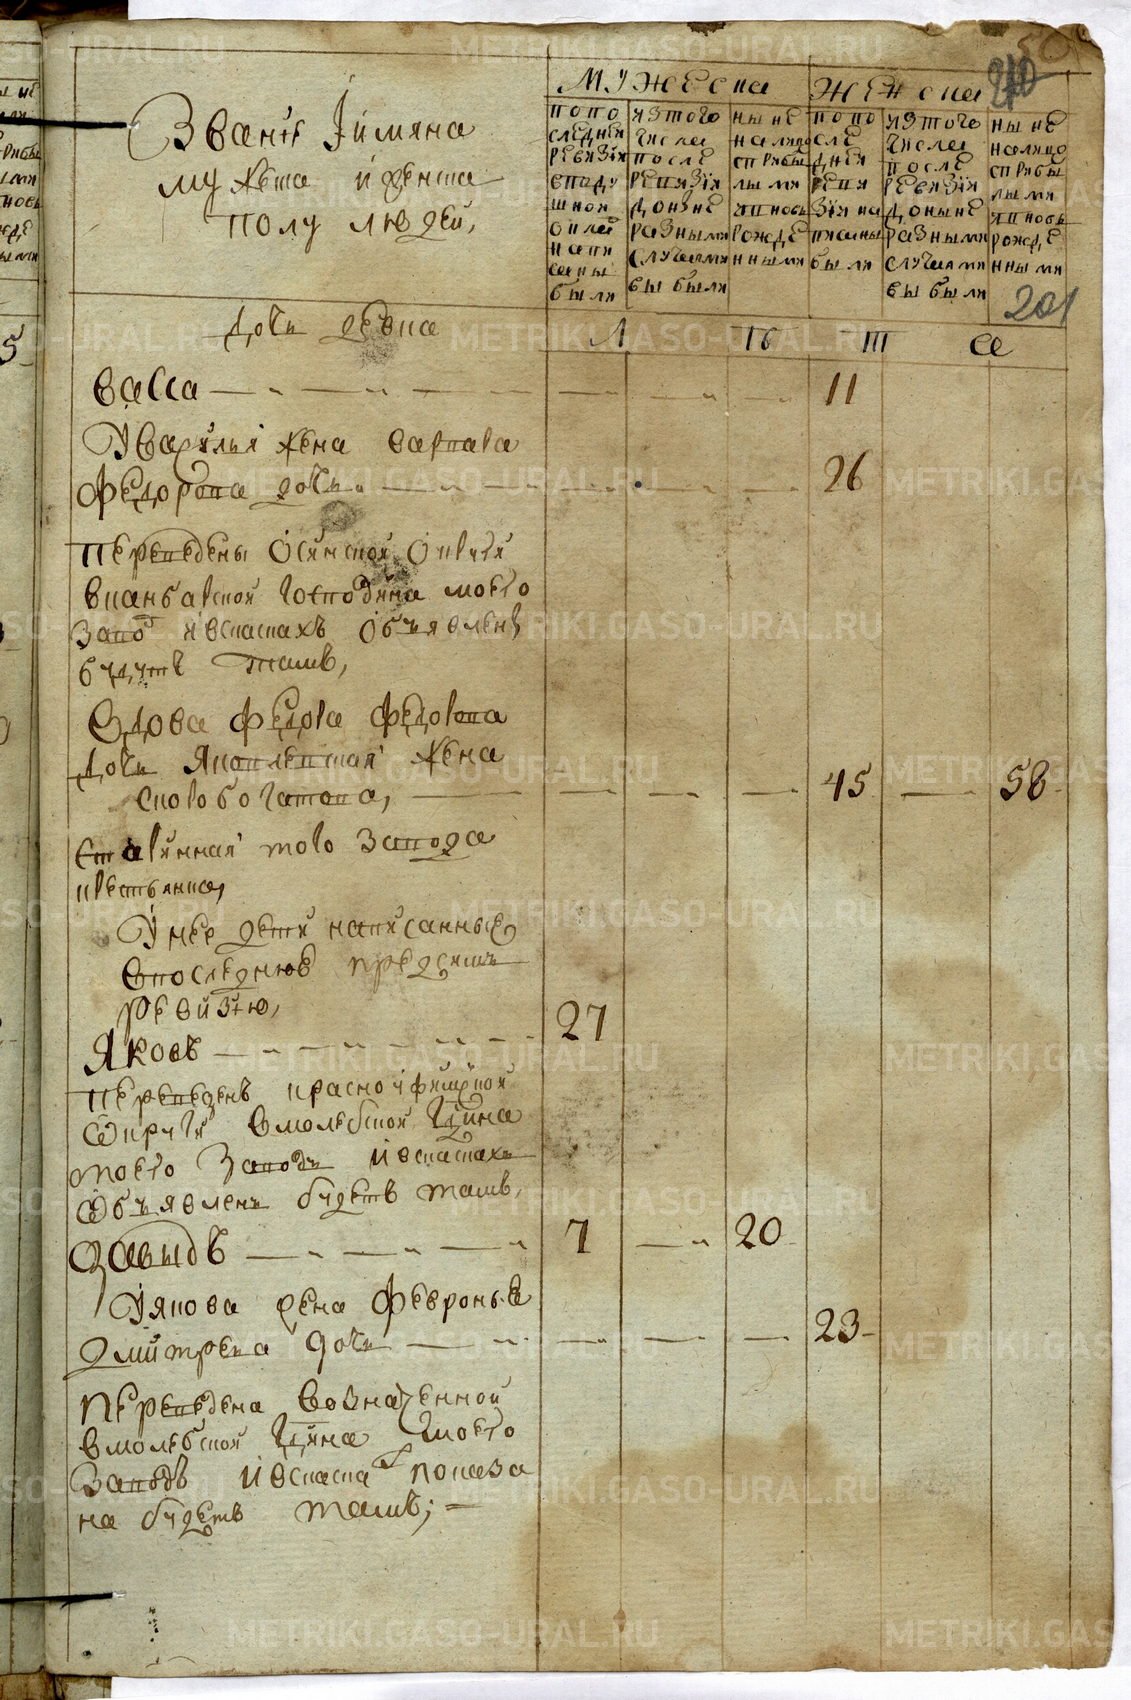 50
270
Званiе Iимяна
мужеска ижѣнска
полу людей,
МУЖЕСКА
ЖЕНСКА
попо
следней
ревизiи
вподу
шной
оклад
напи
саны
были
изтого
числа
после
ревизiи
доныне
разными
случаями
выбыли
ныне
налицо
сприбы
лыми
ивновь
рожде
нными
попо
сле
дней
реви
зiи на
писаны
были
изтого
числа
после
ревизiи
доныне
разными
случаями
выбыли
ныне
налицо
сприбы
лыми
ивновь
рожде
нными
201
дочь девка
Л
ТБ
Ш
СЕ
васса 11
жена варвара
Федорова дочь 26
переведены Осинской Округи
вкамбарской господина моего
заво и всказкахъ объявлены
будутъ тамъ,
вдова федора федорова
дочь Яковлевская жена
скоробогатова, 45 58
старинная того завода
крестьянка,
Унее дети написанныя
впоследнюю предсимъ
ревизiю,
Яковъ 27
переведенъ красноуфимской
округи вмолебской гдина
моего заводъ ивсказкахъ
объявленъ будетъ тамъ,
давыдъ 7 20
Уякова жена февронья
дмитрева дочь 23
переведена возначенной
вмолебской гдина моего
заводъ ивсказкахъ показа
на будетъ тамъ;